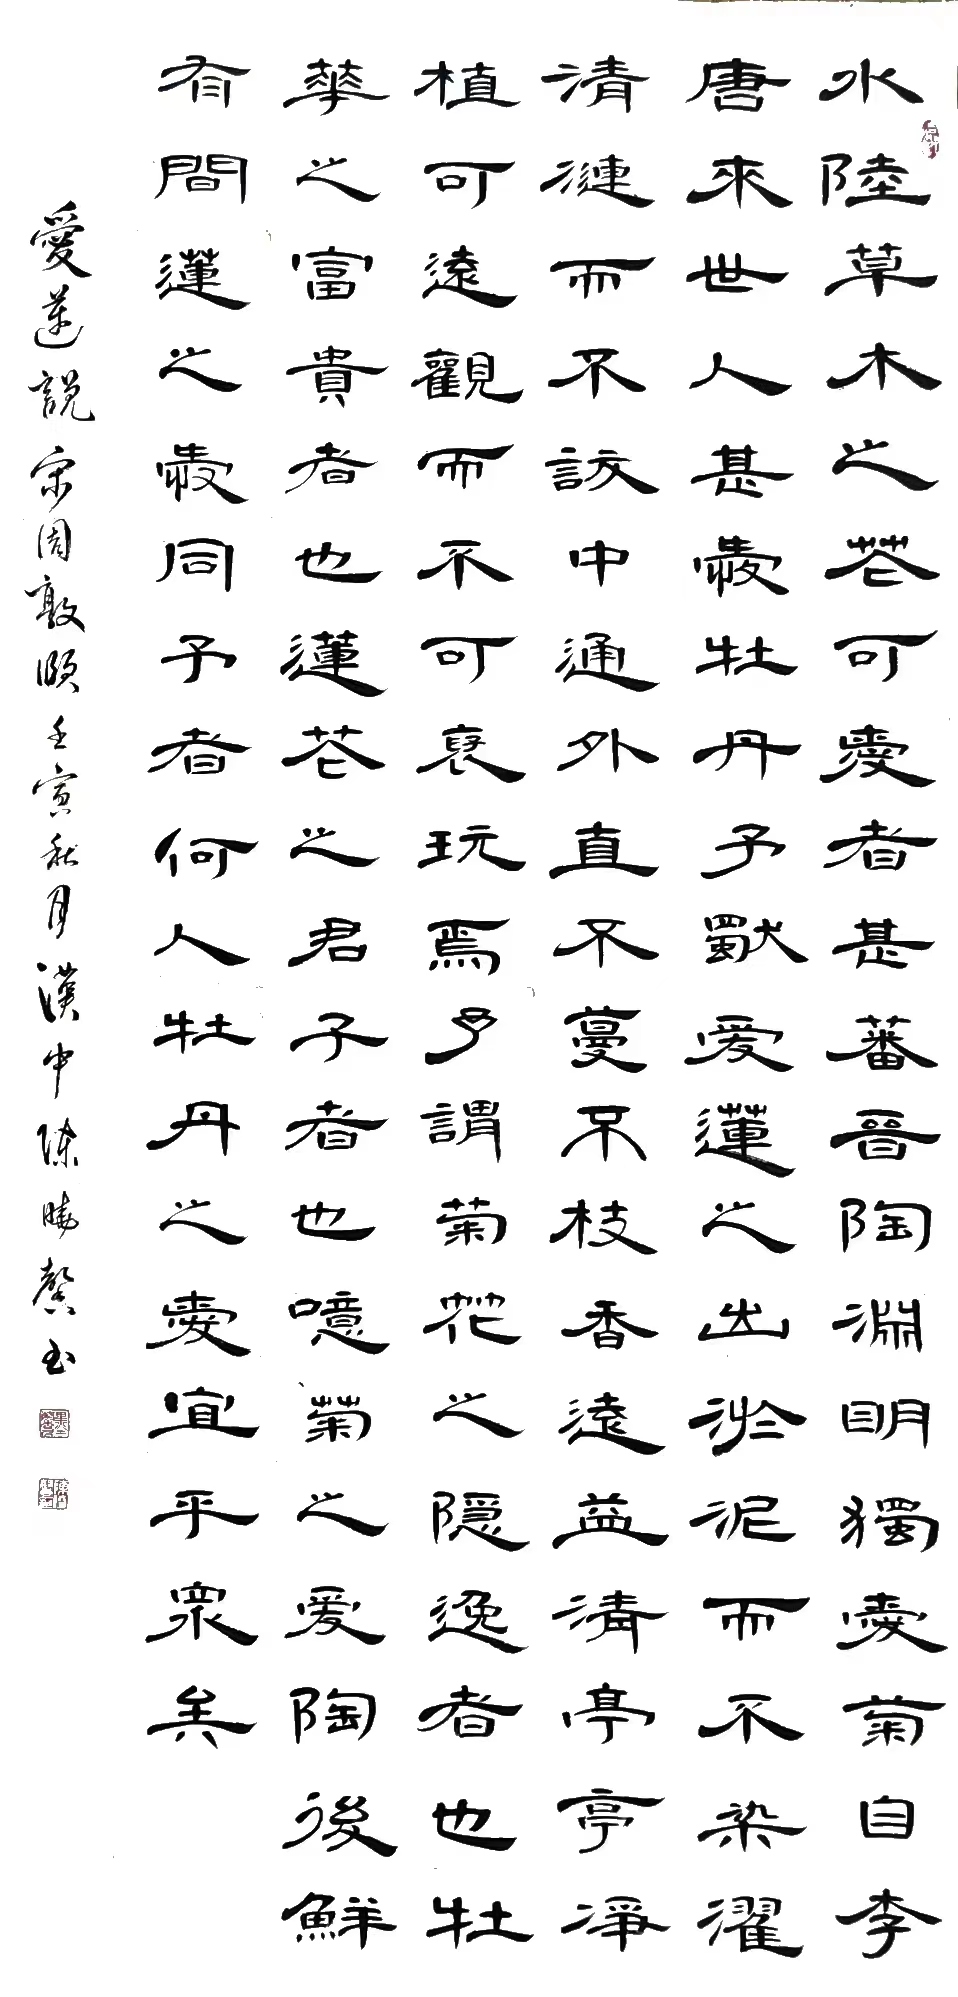 水陸草木之花可愛者甚蕃晉陶淵明獨愛菊自李
唐來世人甚愛牡丹予獨愛蓮之出淤泥而不染濯
清漣而不訞中通外直不蔓不枝香遠益清亭亭淨
植可遠觀而不可褻玩焉予謂菊花之隱逸者也牡
華之富貴者也蓮花之君子者也噫菊之愛陶後鮮
有間蓮之愛同予者何人牡丹之愛宜乎眾矣
愛蓮說宋周敦頤壬寅秋月漢中陳曉馨書